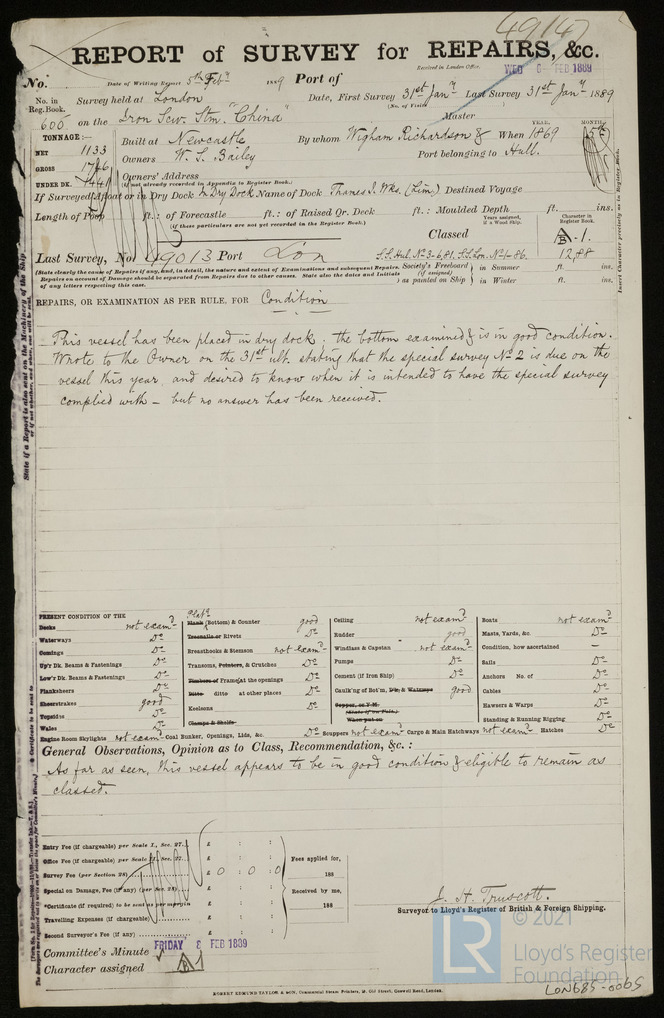 49147
REPORT of SURVEY for REPAIRS, &c.
Received in London Office, WED 6 FEB 1889
No. Date of Writing Report 5th Feby 1889 Port of
No. in Reg. Book. Survey held at London Date, First Survey 31st Jany Last Survey 31st Jany 1889
(No. of Visits)
606 on the Iron Scw. Stm. "China" Master
TONNAGE:— Built at Newcastle By whom Wigham Richardson & When 1869 5th
YEAR. MONTH.
NET 1133 Owners W. S. Bailey Port belonging to Hull.
GROSS
UNDER DK. 1441 Owners' Address
(if not already recorded in Appendix to Register Book.)
If Surveyed Afloat or in Dry Dock In Dry Dock Name of Dock Thames I. Wks. (Lim.) Destined Voyage
Length of Poop ft.: of Forecastle ft.: of Raised Qr. Deck ft.: Moulded Depth ft. ins.
(if these particulars are not yet recorded in the Register Book.)
Years assigned, if a Wood Ship.
Character in Register Book.
Classed A.1.
Last Survey, No. 49013 Port Lon S.S.Hul.No.3-6.81. S.S.Lon.No.1-86. 12,88
(State clearly the cause of Repairs if any, and, in detail, the nature and extent of Examinations and subsequent Repairs.
Repairs on account of Damage should be separated from Repairs due to other causes. State also the dates and Initials
of any letters respecting this case.
Society's Freeboard (if assigned) as painted on Ship in Summer ft. ins.
in Winter ft. ins.
Insert Character precisely as in Register Book.
REPAIRS, OR EXAMINATION AS PER RULE, FOR Condition
This vessel has been placed in dry dock; the bottom examined & is in good condition.
Wrote to the Owner on the 31st ult. stating that the special survey No 2 is due on the
vessel this year, and desired to know when it is intended to have the special survey
complied with – but no answer has been received.
State if a Report is also sent on the Machinery of the Ship
or if not, whether, and when, one will be sent.
PRESENT CONDITION OF THE
Decks not examd
Waterways Do
Comings Do
Up'r Dk. Beams & Fastenings Do
Low'r Dk. Beams & Fastenings Do
Planksheers Do
Sheerstrakes good
Topside Do
Wales Do
Engine Room Skylights not examd
Platg
Plank (Bottom) & Counter good
Treenails or Rivets Do
Breasthooks & Stemson not examd
Transoms, Pointers, & Crutches Do
Timbers of Frame at the openings Do
Ditto ditto at other places Do
Keelsons Do
Clamps & Shelfs
Coal Bunker, Openings, Lids, &c. Do
Ceiling not examd
Rudder good
Windlass & Capstan not examd
Pumps Do
Cement (if Iron Ship) Do
Caulk'ng of Bot'm, Dk, & Waterways good
Copper, or Y.M.
(State if on Felt.)
When put on
Scuppers not examd Cargo & Main Hatchways not examd
Boats not examd
Masts, Yards, &c. Do
Condition, how ascertained —
Sails Do
Anchors No. of Do
Cables Do
Hawsers & Warps Do
Standing & Running Rigging Do
Hatches Do
General Observations, Opinion as to Class, Recommendation, &c.:
As far as seen, this vessel appears to be in good condition & eligible to remain as
classed.
Certificate to be sent to
Entry Fee (if chargeable) per Scale I., Sec. 27... £ : :
Office Fee (if chargeable) per Scale II., Sec. 27... £ : :
Survey Fee (per Section 28) £ 0 : 0 : 0
Special on Damage, Fee (if any) (per Sec. 28) £ : :
*Certificate (if required) to be sent as per margin £ : :
Travelling Expenses (if chargeable) £ : :
Second Surveyor's Fee (if any) £ : :
Fees applied for,
188
Received by me,
188
J. H. Truscott.
Surveyor to Lloyd's Register of British & Foreign Shipping.
Committee's Minute FRIDAY 8 FEB 1889
Character assigned A 1
ROBERT EDMUND TAYLOR, & SON, Commercial Steam Printers, 19, Old Street, Goswell Road, London.
LR
© 2021
Lloyd's Register
Foundation
LON685-0065